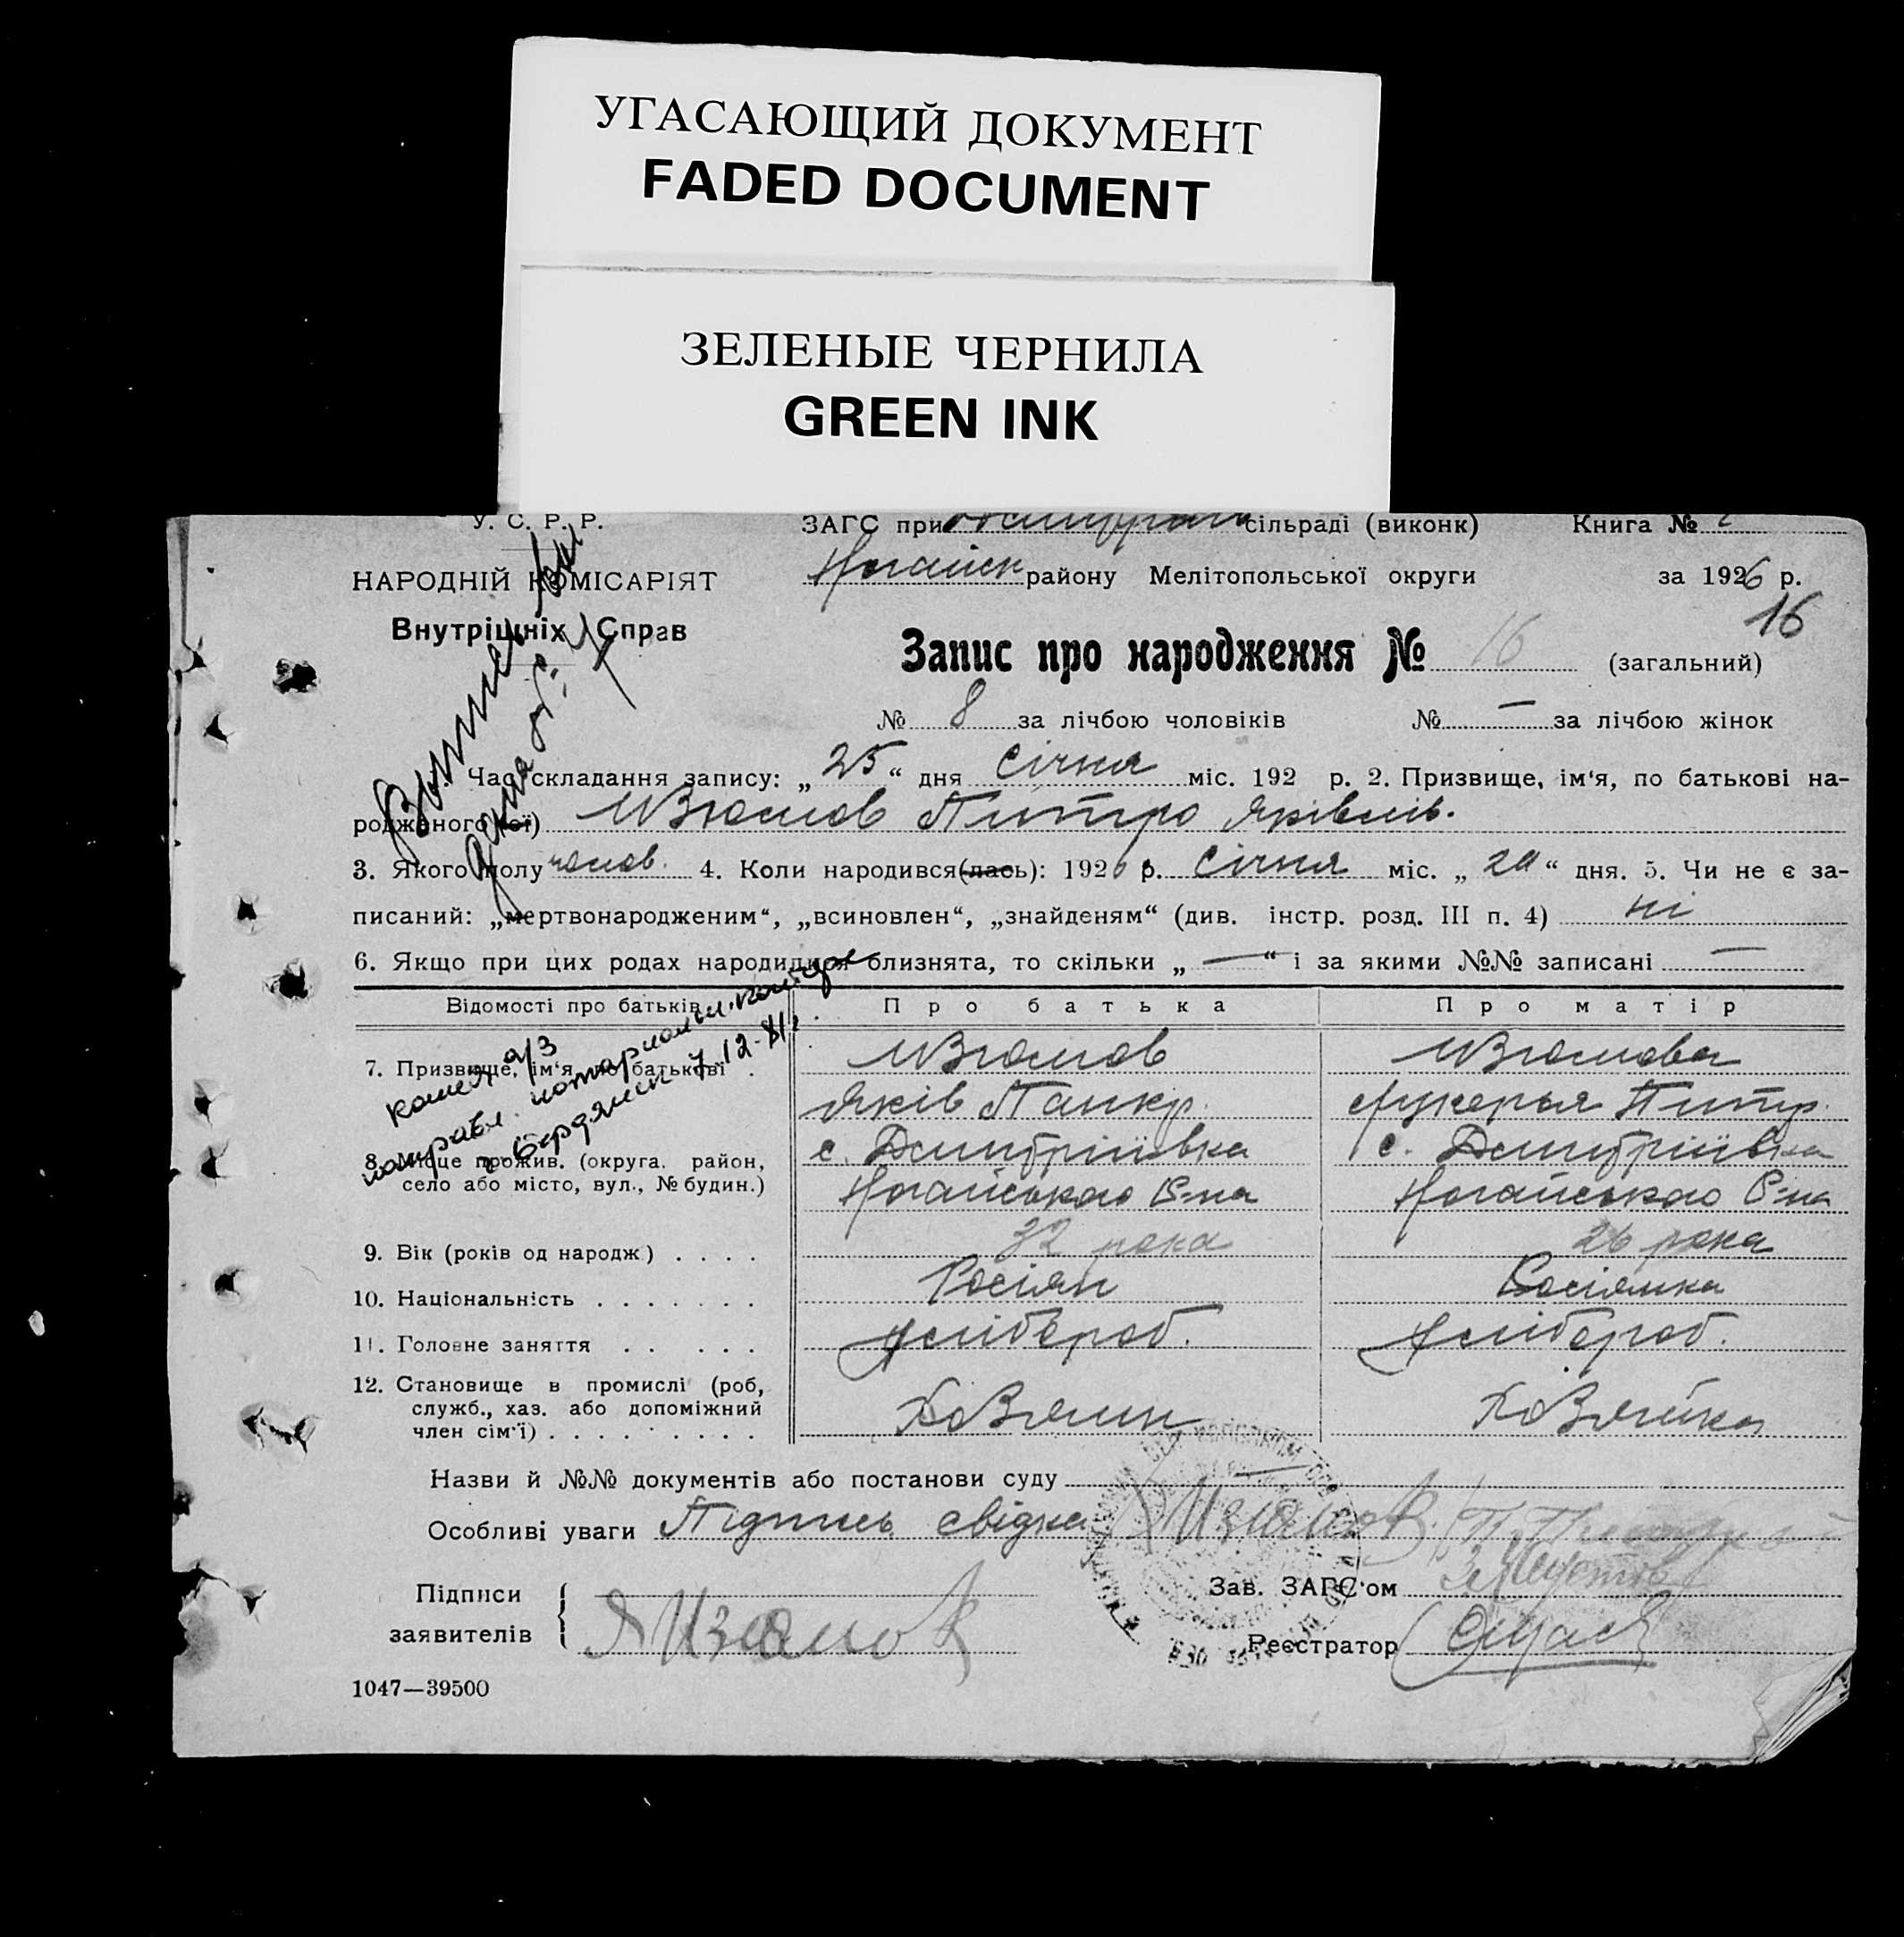 УГАСАЮЩИЙ ДОКУМЕНТ
FADED DOCUMENT
ЗЕЛЕНЫЕ ЧЕРНИЛА
GREEN INK
У. С. Р. Р.
ЗАГС при сільраді (виконк) Книга №
НАРОДНІЙ КОМІСАРІЯТ
Ногайск району Мелітопольської округи за 1926 р.
16
Внутрішніх Справ
Запис про народження № 16 (загальний)
№ 8 за лічбою чоловіків № — за лічбою жінок
Час складання запису: „25“ дня Січня міс. 192 р. 2. Призвище, ім‘я, по батькові на-
родженого(ої) Изюмов Питро Яківлів.
3. Якого полу чолов. 4. Коли народився(лась): 1926 р. Січня міс. „20“ дня. 5. Чи не є за-
писаний: „мертвонародженим“, „всиновлен“, „знайденям“ (див. інстр. розд. III п. 4) ні
6. Якщо при цих родах народилися близнята, то скільки „—“ і за якими №№ записані —
Відомості про батьків Про батька Про матір
7. Призвище, ім‘я, по батькові . Изюмов Изюмова
Яків Панкр. Лукерья Питр.
8. Місце прожив. (округа. район, с. Дмитріївка с. Дмитріївка
село або місто, вул., № будин.) Ногайського Р-на Ногайського Р-на
9. Вік (років од народж) . . . . 32 рока 26 рока
10. Національність . . . . . . . Росіян Росіянка
11. Головне заняття . . . . . Хлібороб. Хлібороб.
12. Становище в промислі (роб,
служб., хаз. або допоміжний Хозяин Хозяйка
член сім‘ї) . . . . . . . . .
Назви й №№ документів або постанови суду —
Особливі уваги Підпись свідка Изюмов
Підписи
заявителів Я Изюмов
Зав. ЗАГС‘ом
Реєстратор
1047—39500
копия а/з
направл. нотариальн. конторе
г. Бердянск 7.12-81г.